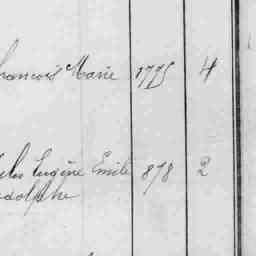 François Marie 1775 4
Jules Eugène Emile 878 2
Adolphe